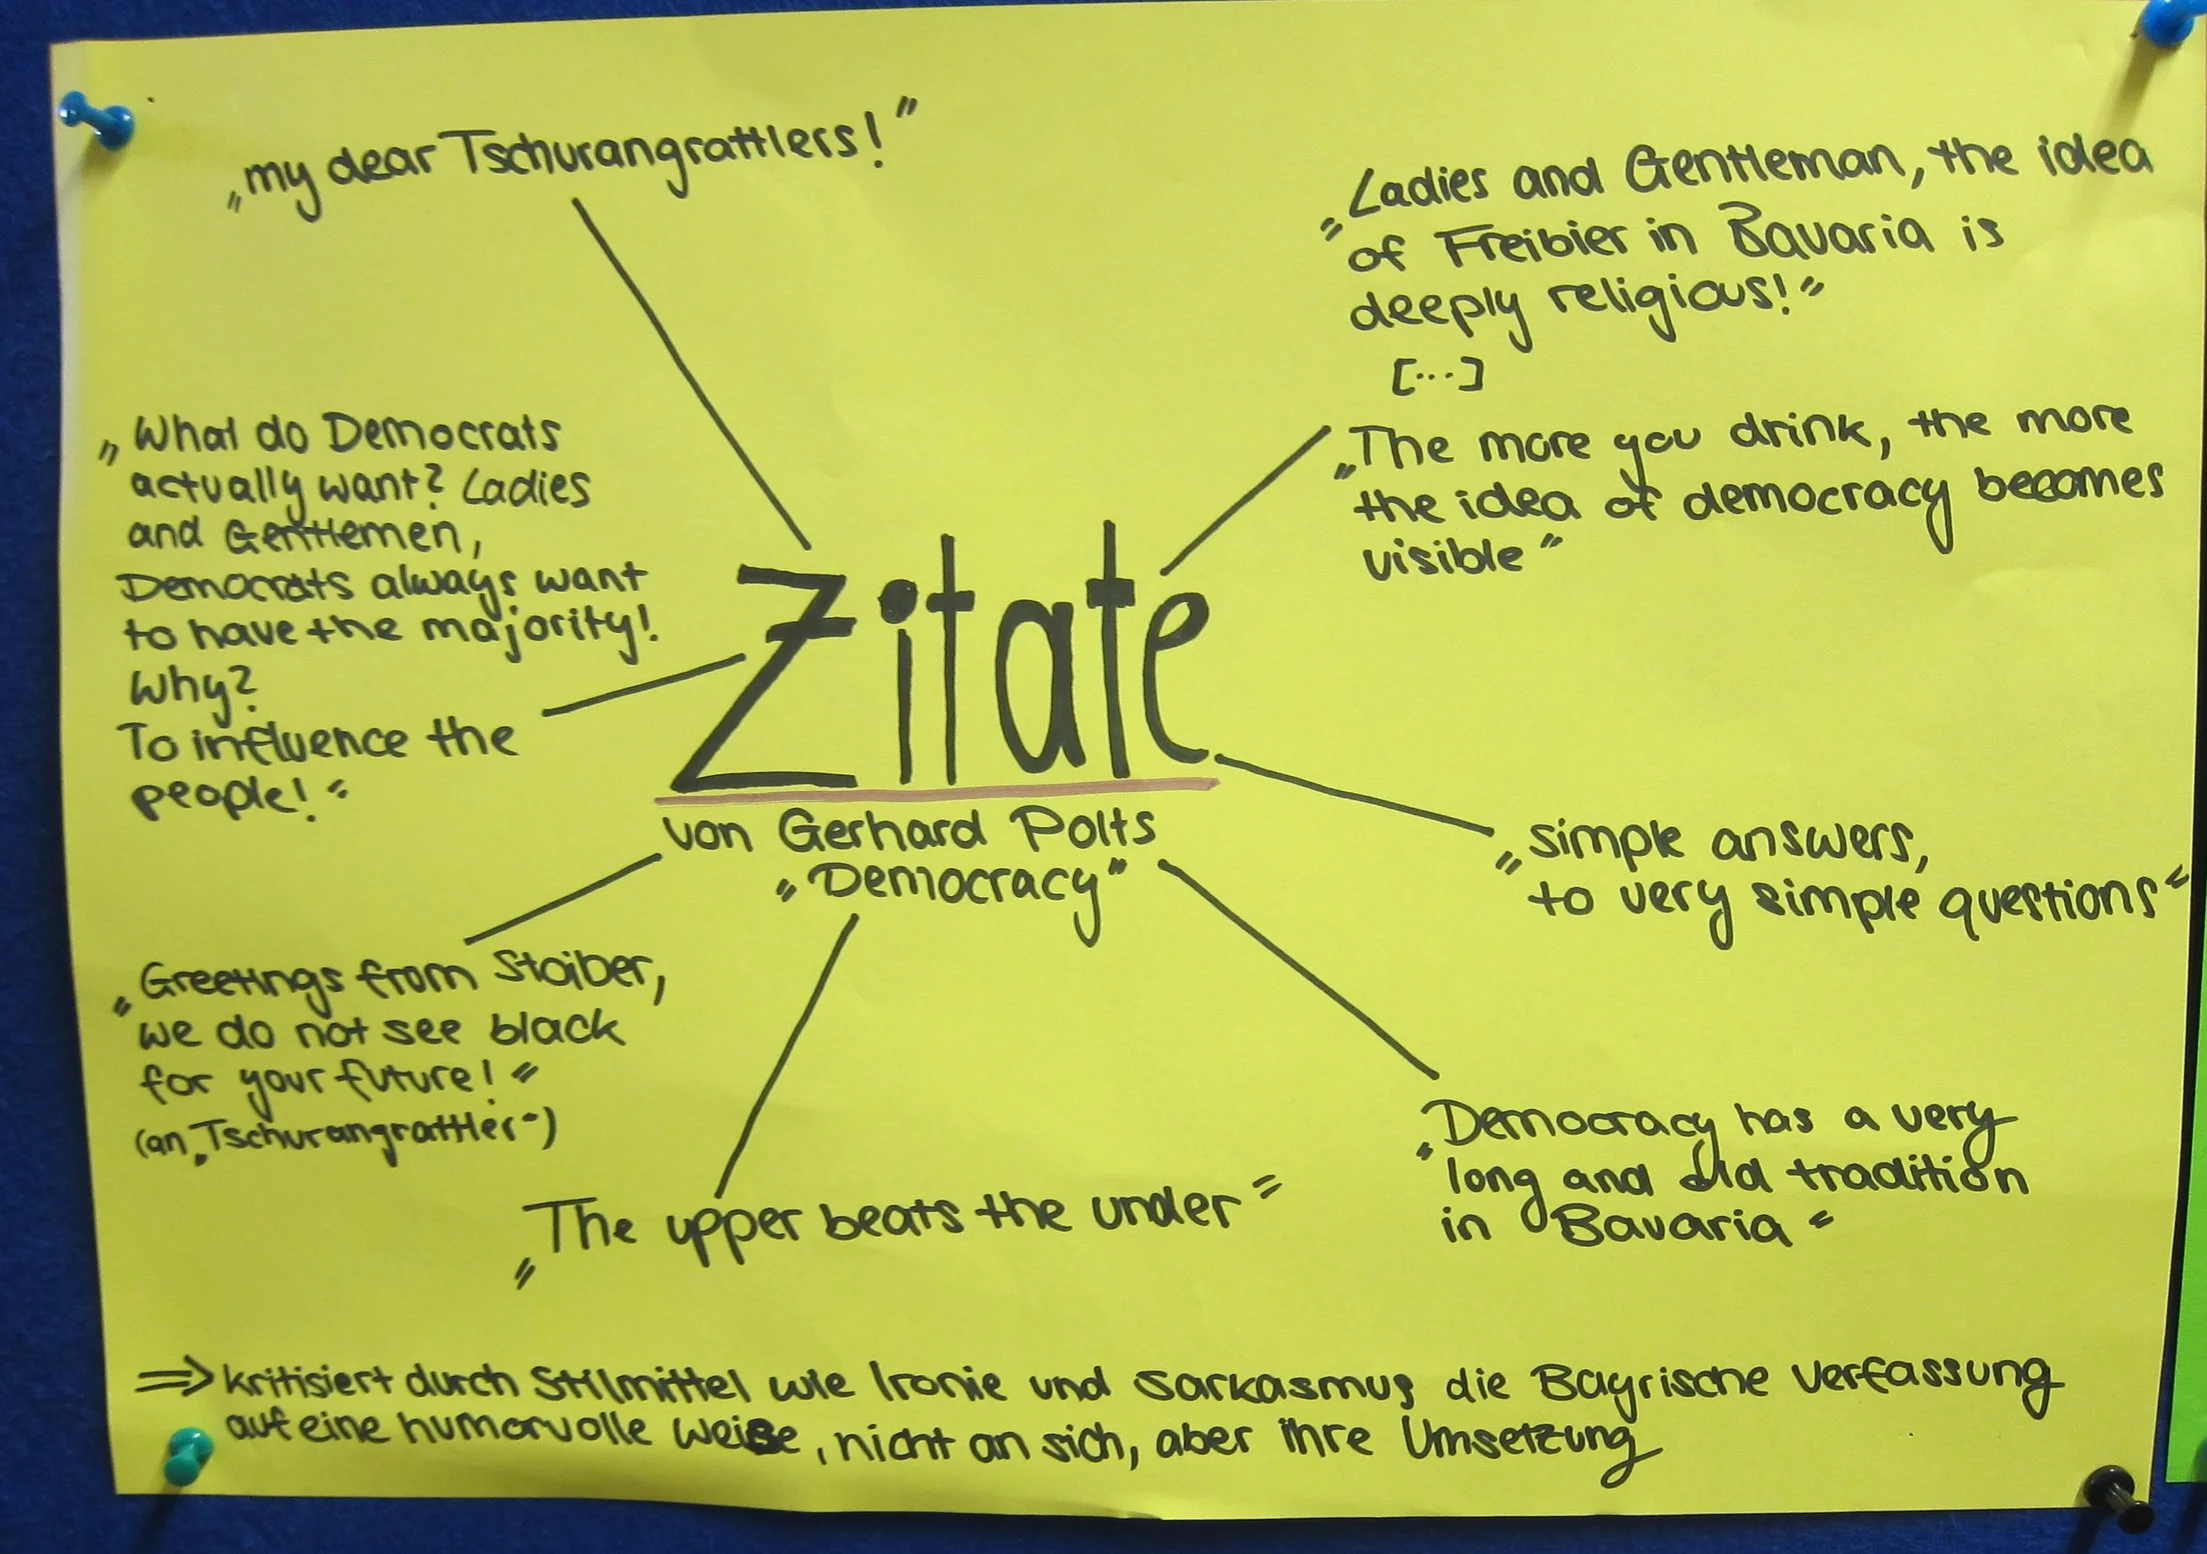 „my dear Tschurangrattlers!"
„Ladies and Gentleman, the idea
of Freibier in Bavaria is
deeply religious!"
[...]
„The more you drink, the more
the idea of democracy becomes
visible"
„What do Democrats
actually want? Ladies
and Gentlemen,
Democrats always want
to have the majority!
Why?
To influence the
people!"
Zitate
von Gerhard Polts
„Democracy"
„simple answers,
to very simple questions"
„Greetings from Stoiber,
we do not see black
for your future!"
(an „Tschurangrattler")
„Democracy has a very
long and old tradition
in Bavaria"
„The upper beats the under"
⇒ kritisiert durch Stilmittel wie Ironie und Sarkasmus die Bayrische Verfassung
auf eine humorvolle Weise, nicht an sich, aber ihre Umsetzung